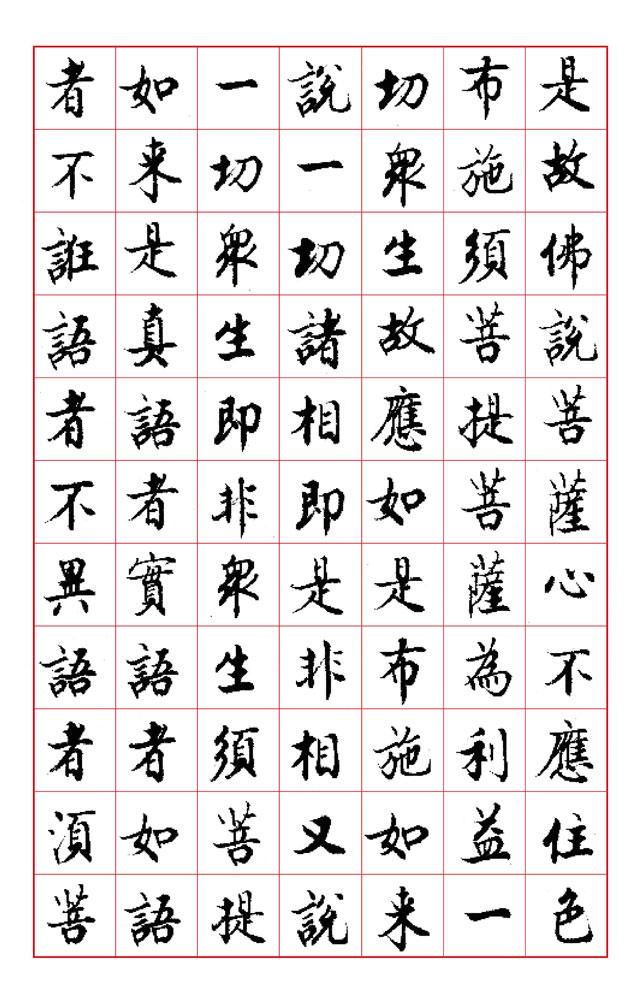 是故佛說菩薩心不應住色
布施須菩提菩薩為利益一
切眾生故應如是布施如来
說一切諸相即是非相又說
一切眾生即非眾生須菩提
如来是真語者實語者如語
者不誑語者不異語者須菩